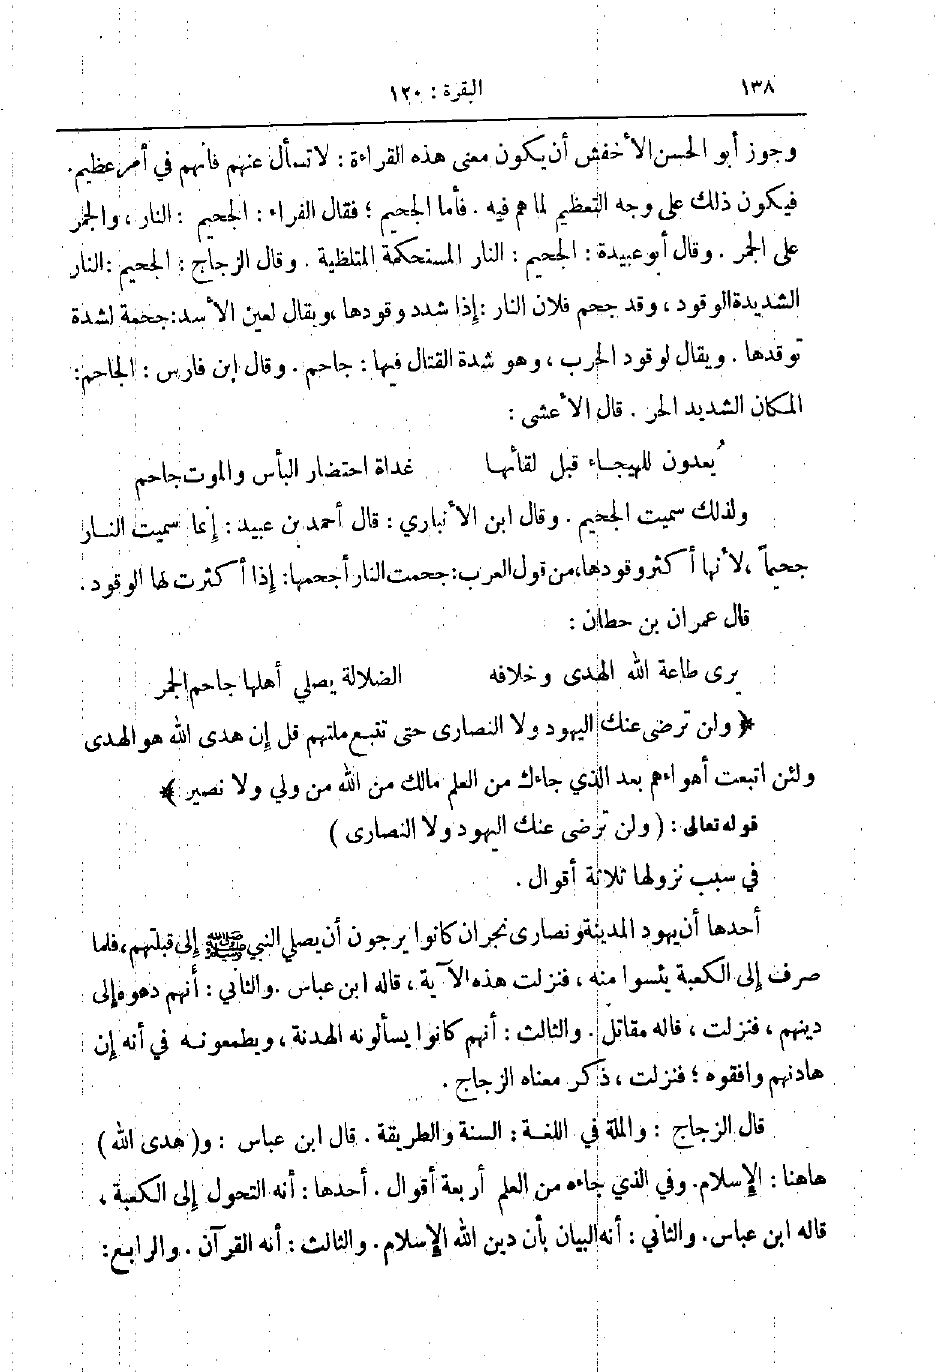 ١٣٨
البقرة : ١٢٠
وجوز أبو الحسن الأخفش أن يكون معنى هذه القراءة : لا تسأل عنهم فانهم في أمر عظيم.
فيكون ذلك على وجه التعظيم لما هم فيه . فأما الجحيم ؛ فقال الفراء : الجحيم : النار ، والجمر
على الجمر . وقال أبو عبيدة : الجحيم : النار المستحكمة المتلظية . وقال الزجاج : الجحيم : النار
الشديدة الوقود ، وقد جحم فلان النار : إذا شدد وقودها ، ويقال لعين الأسد : جحمة لشدة
توقدها . ويقال لوقود الحرب ، وهو شدة القتال فيها : جاحم . وقال ابن فارس : الجاحم :
المكان الشديد الحر . قال الأعشى :
يُعدون للهيجاء قبل لقائها غداة احتضار البأس والموت جاحم
ولذلك سميت الجحيم . وقال ابن الأنباري : قال أحمد بن عبيد : إنما سميت النار
جحيماً ، لأنها أكثر وقودها ، من قول العرب : جحمت النار أجحمها : إذا أكثرت لها الوقود .
قال عمران بن حطان :
يرى طاعة الله الهدى وخلافه الضلالة يصلي أهلها جاحم الجمر
﴿ ولن ترضى عنك اليهود ولا النصارى حتى تتبع ملتهم قل إن هدى الله هو الهدى
ولئن اتبعت أهواءهم بعد الذي جاءك من العلم مالك من الله من ولي ولا نصير ﴾
قوله تعالى : ( ولن ترضى عنك اليهود ولا النصارى )
في سبب نزولها ثلاثة أقوال .
أحدها أن يهود المدينة ونصارى نجران كانوا يرجون أن يصلي النبي ﷺ إلى قبلتهم ، فلما
صرف إلى الكعبة يئسوا منه ، فنزلت هذه الآية ، قاله ابن عباس . والثاني : أنهم دعوه إلى
دينهم ، فنزلت ، قاله مقاتل . والثالث : أنهم كانوا يسألونه الهدنة ، ويطمعونه في أنه إن
هادنهم وافقوه ؛ فنزلت ، ذكر معناه الزجاج .
قال الزجاج : والملة في اللغة : السنة والطريقة . قال ابن عباس : و( هدى الله )
هاهنا : الإسلام . وفي الذي جاءه من العلم أربعة أقوال . أحدها : أنه التحول إلى الكعبة ،
قاله ابن عباس . والثاني : أنه البيان بأن دين الله الإسلام . والثالث : أنه القرآن . والرابع :